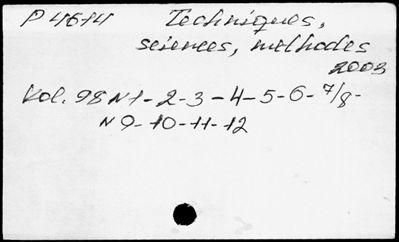 P 4614 Techniques,
sciences, méthodes
2003
Vol. 98 N 1-2-3-4-5-6-7/8-
N 9-10-11-12